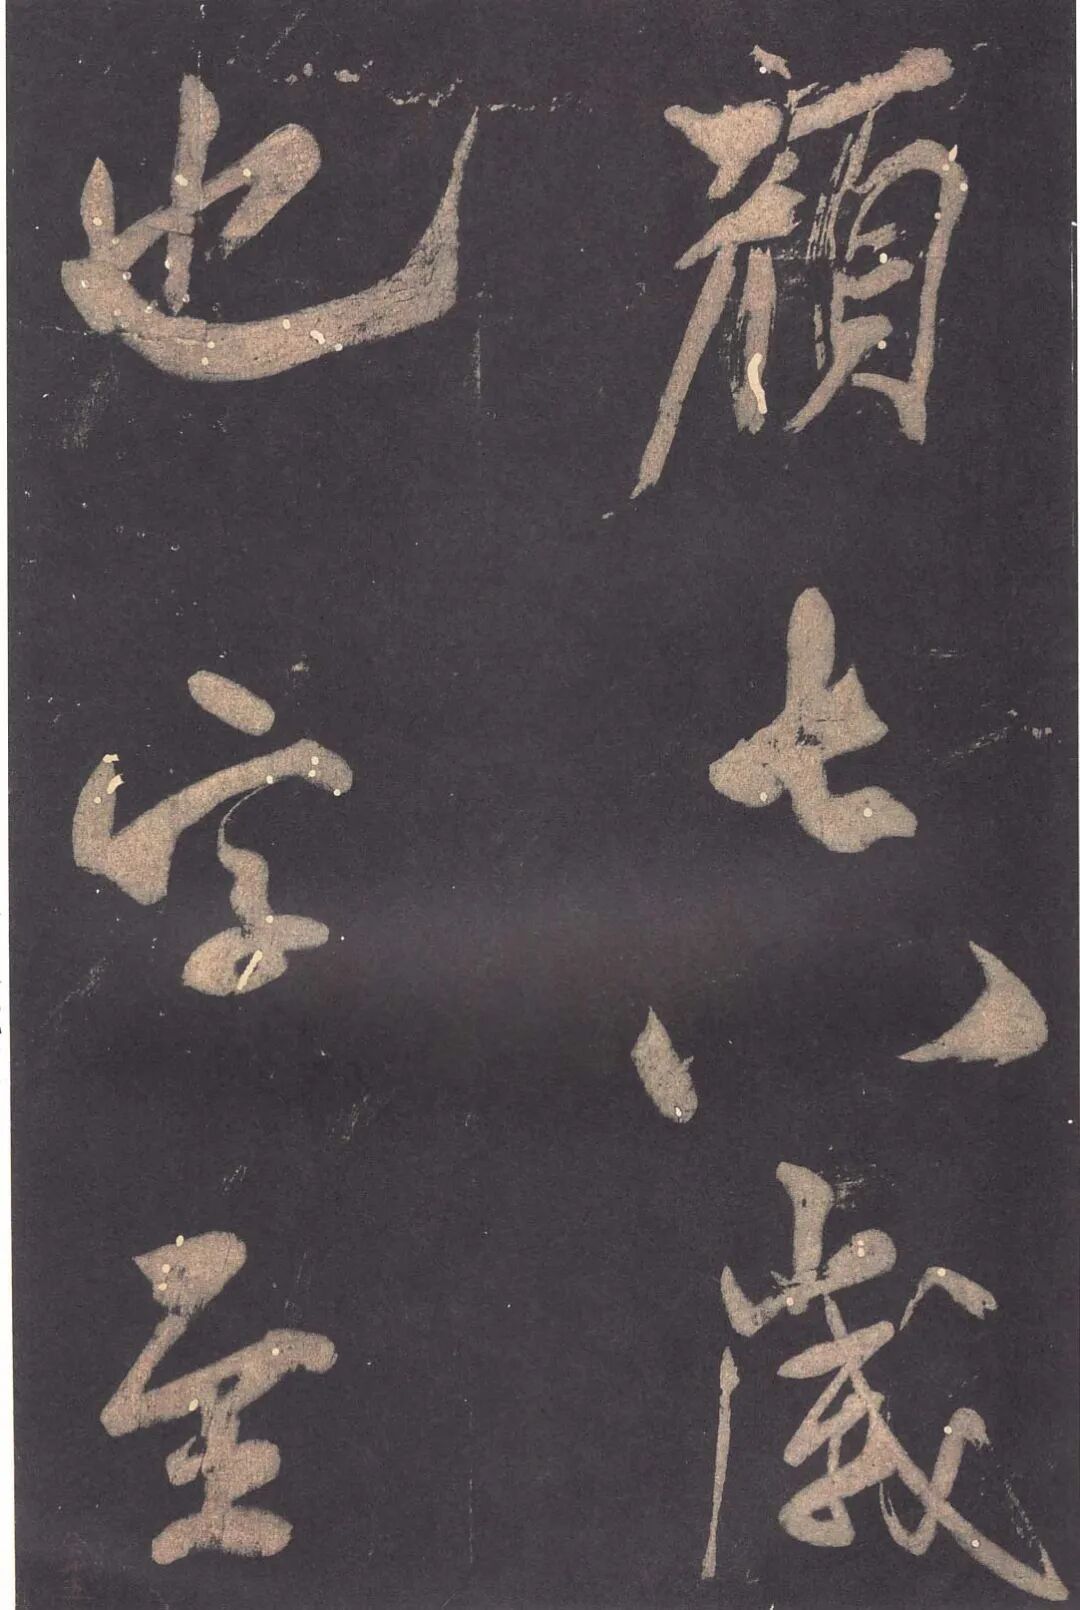 顏七八歲
也字至